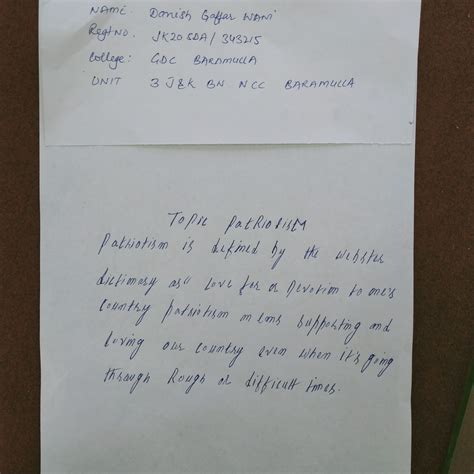 NAME: Donish Gaffar WANI
Regt NO. JK20SDA/343215
College: GDC BARAMULLA
UNIT 3 J&K BN NCC BARAMULLA
TOPIC PATRIOTISM
Patriotism is defined by the webster
dictionary as" Love for or Devotion to one's
Country patriotism means supporting and
loving our country even when it's going
through Rough or difficult times.